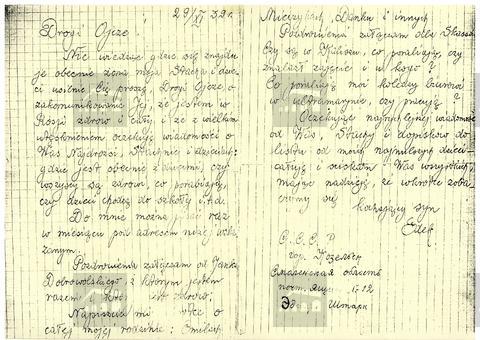 29/XI 39 r.
Drogi Ojcze.
Nie wiedząc gdzie się znajdu
je obecnie żona moja i dzie
ci usilnie Cię proszę, Drogi Ojcze, o
zakomunikowanie Jej, że jestem w
Rosji zdrów i cały, i że z wielkim
utęsknieniem oczekuję wiadomości o
Was Najdrożsi, i dzieciach:
gdzie jest obecnie z dziećmi, czy
wszyscy są zdrowi, co porabiają,
czy dzieci chodzą do szkoły i.t.d.
Do mnie można pisać raz
w miesiącu pod adresem niżej wska
zanym.
Pozdrowienia załączam od Janka
Dobrowolskiego, z którym jestem
razem zdrów.
Napiszcie mi o
całej mojej rodzinie:
Mieczysiach, Danku i innych
Pozdrowienia załączam dla
Czy są w co porabiają, czy
znalazł zajęcie i u kogo?
Co porabiają moi koledzy biurowi
w ultramarynie, czy pracują?
Oczekując najrychlejszej wiadomości
od Was, i dopisków do
listu od moich najmilszych dzieci
całuję i ściskam Was wszystkich,
mając nadzieję, że wkrótce zoba
czymy się
kochający syn
Edek
С.С.С.Р
гор. Козельск
Смоленская область
почт. ящик 12
Штарк